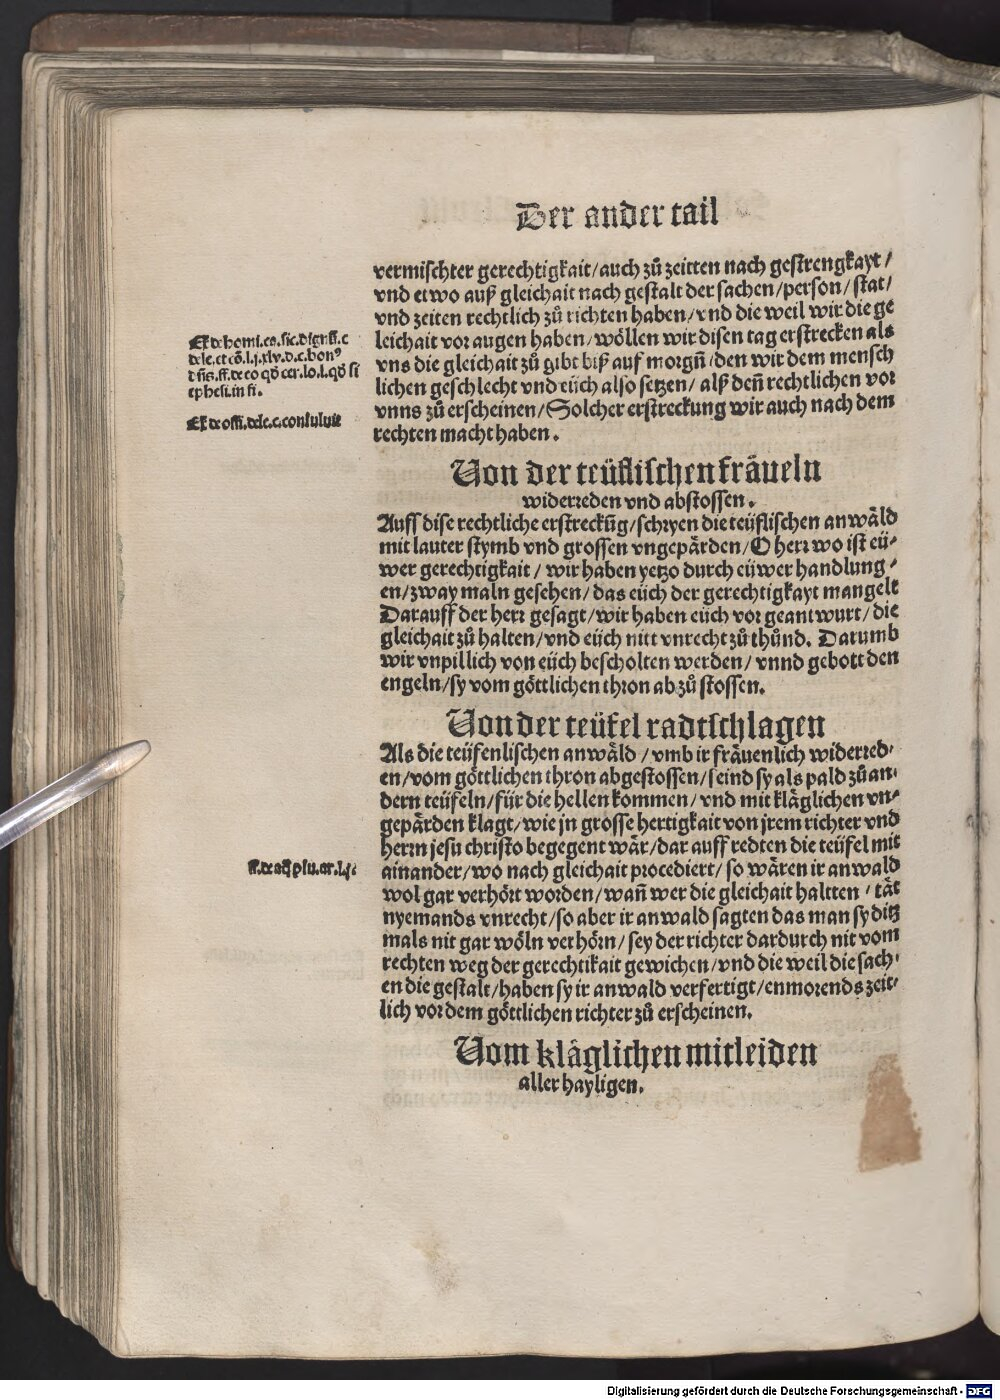 Der ander tail
vermischter gerechtigkait/auch zů zeitten nach gestrengkayt/
vnd etwo auß gleichait nach gestalt der sachen/person/stat/
vnd zeiten rechtlich zů richten haben/vnd die weil wir die ge
leichait vor augen haben/wöllen wir disen tag erstrecken als
vns die gleichait zů gibt biß auf morgñ/den wir dem mensch
lichen geschlecht vnd eüch also setzen/alß deñ rechtlichen vor
vnns zů erscheinen/Solcher erstreckung wir auch nach dem
rechten macht haben.
Ex de homi. ca. sic. dignū. c
de le. et cō. l. j. xlv. d. c. bonꝰ
ff. de eo qđ cer. lo. l. qđ si
ephesi. in fi.
Ex de offi. dele. c. consuluit
Von der teüflischen fräueln
widerreden vnd abstossen.
Auff dise rechtliche erstreckūg/schryen die teüflischen anwäld
mit lauter stymb vnd grossen vngepärden/O herr wo ist eü-
wer gerechtigkait/wir haben yetzo durch eüwer handlung-
en/zway maln gesehen/das eüch der gerechtigkayt mangelt
Darauff der herr gesagt/wir haben eüch vor geantwurt/die
gleichait zů halten/vnd eüch nitt vnrecht zů thůnd. Darumb
wir vnpillich von eüch bescholten werden/vnnd gebott den
engeln/sy vom göttlichen thron ab zů stossen.
Von der teüfel radtschlagen
Als die teüfenlischen anwäld/vmb ir fräuenlich widerred-
en/vom göttlichen thron abgestossen/seind sy als pald zů an-
dern teüfeln/für die hellen kommen/vnd mit kläglichen vn-
gepärden klagt/wie jn grosse hertigkait von jrem richter vnd
herrn jesu christo begegent wär/dar auff redten die teüfel mit
ainander/wo nach gleichait procediert/so wären ir anwald
wol gar verhört worden/wañ wer die gleichait haltten/tät
nyemands vnrecht/so aber ir anwald sagten das man sy ditz
mals nit gar wöln verhörn/sey der richter dardurch nit vom
rechten weg der gerechtikait gewichen/vnd die weil die sach-
en die gestalt/haben sy ir anwald verfertigt/enmorends zeit-
lich vor dem göttlichen richter zů erscheinen.
ff. de aq̄ plu. ar. l. j.
Vom kläglichen mitleiden
aller hayligen.
Digitalisierung gefördert durch die Deutsche Forschungsgemeinschaft - DFG